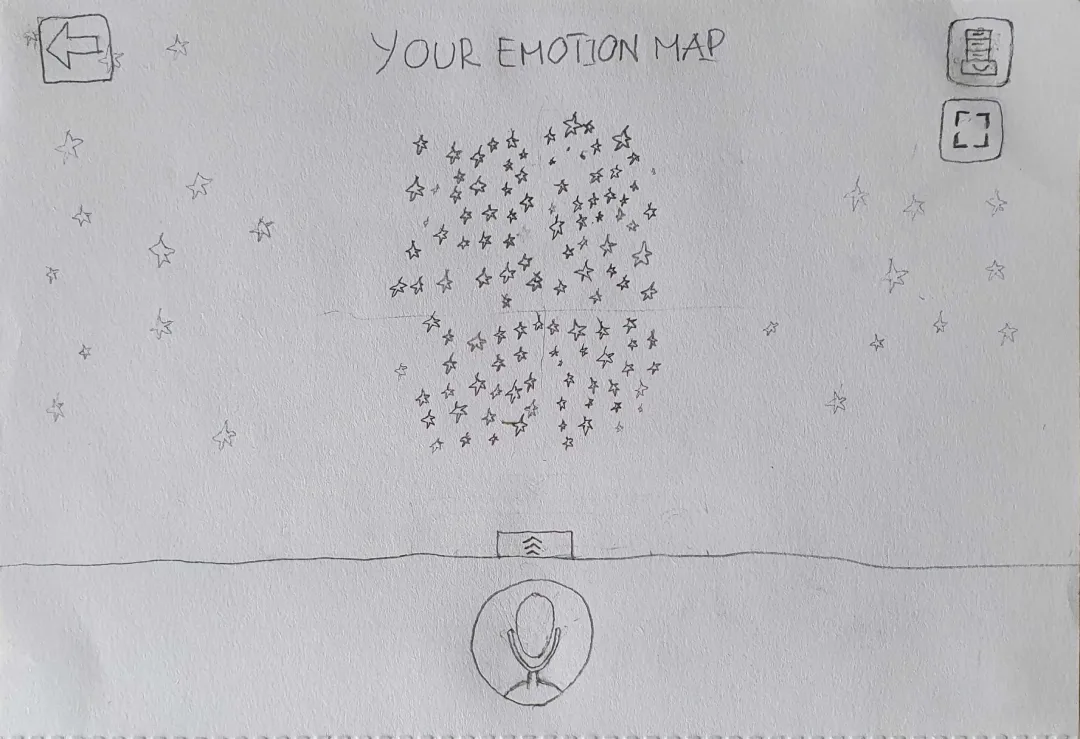 YOUR EMOTION MAP